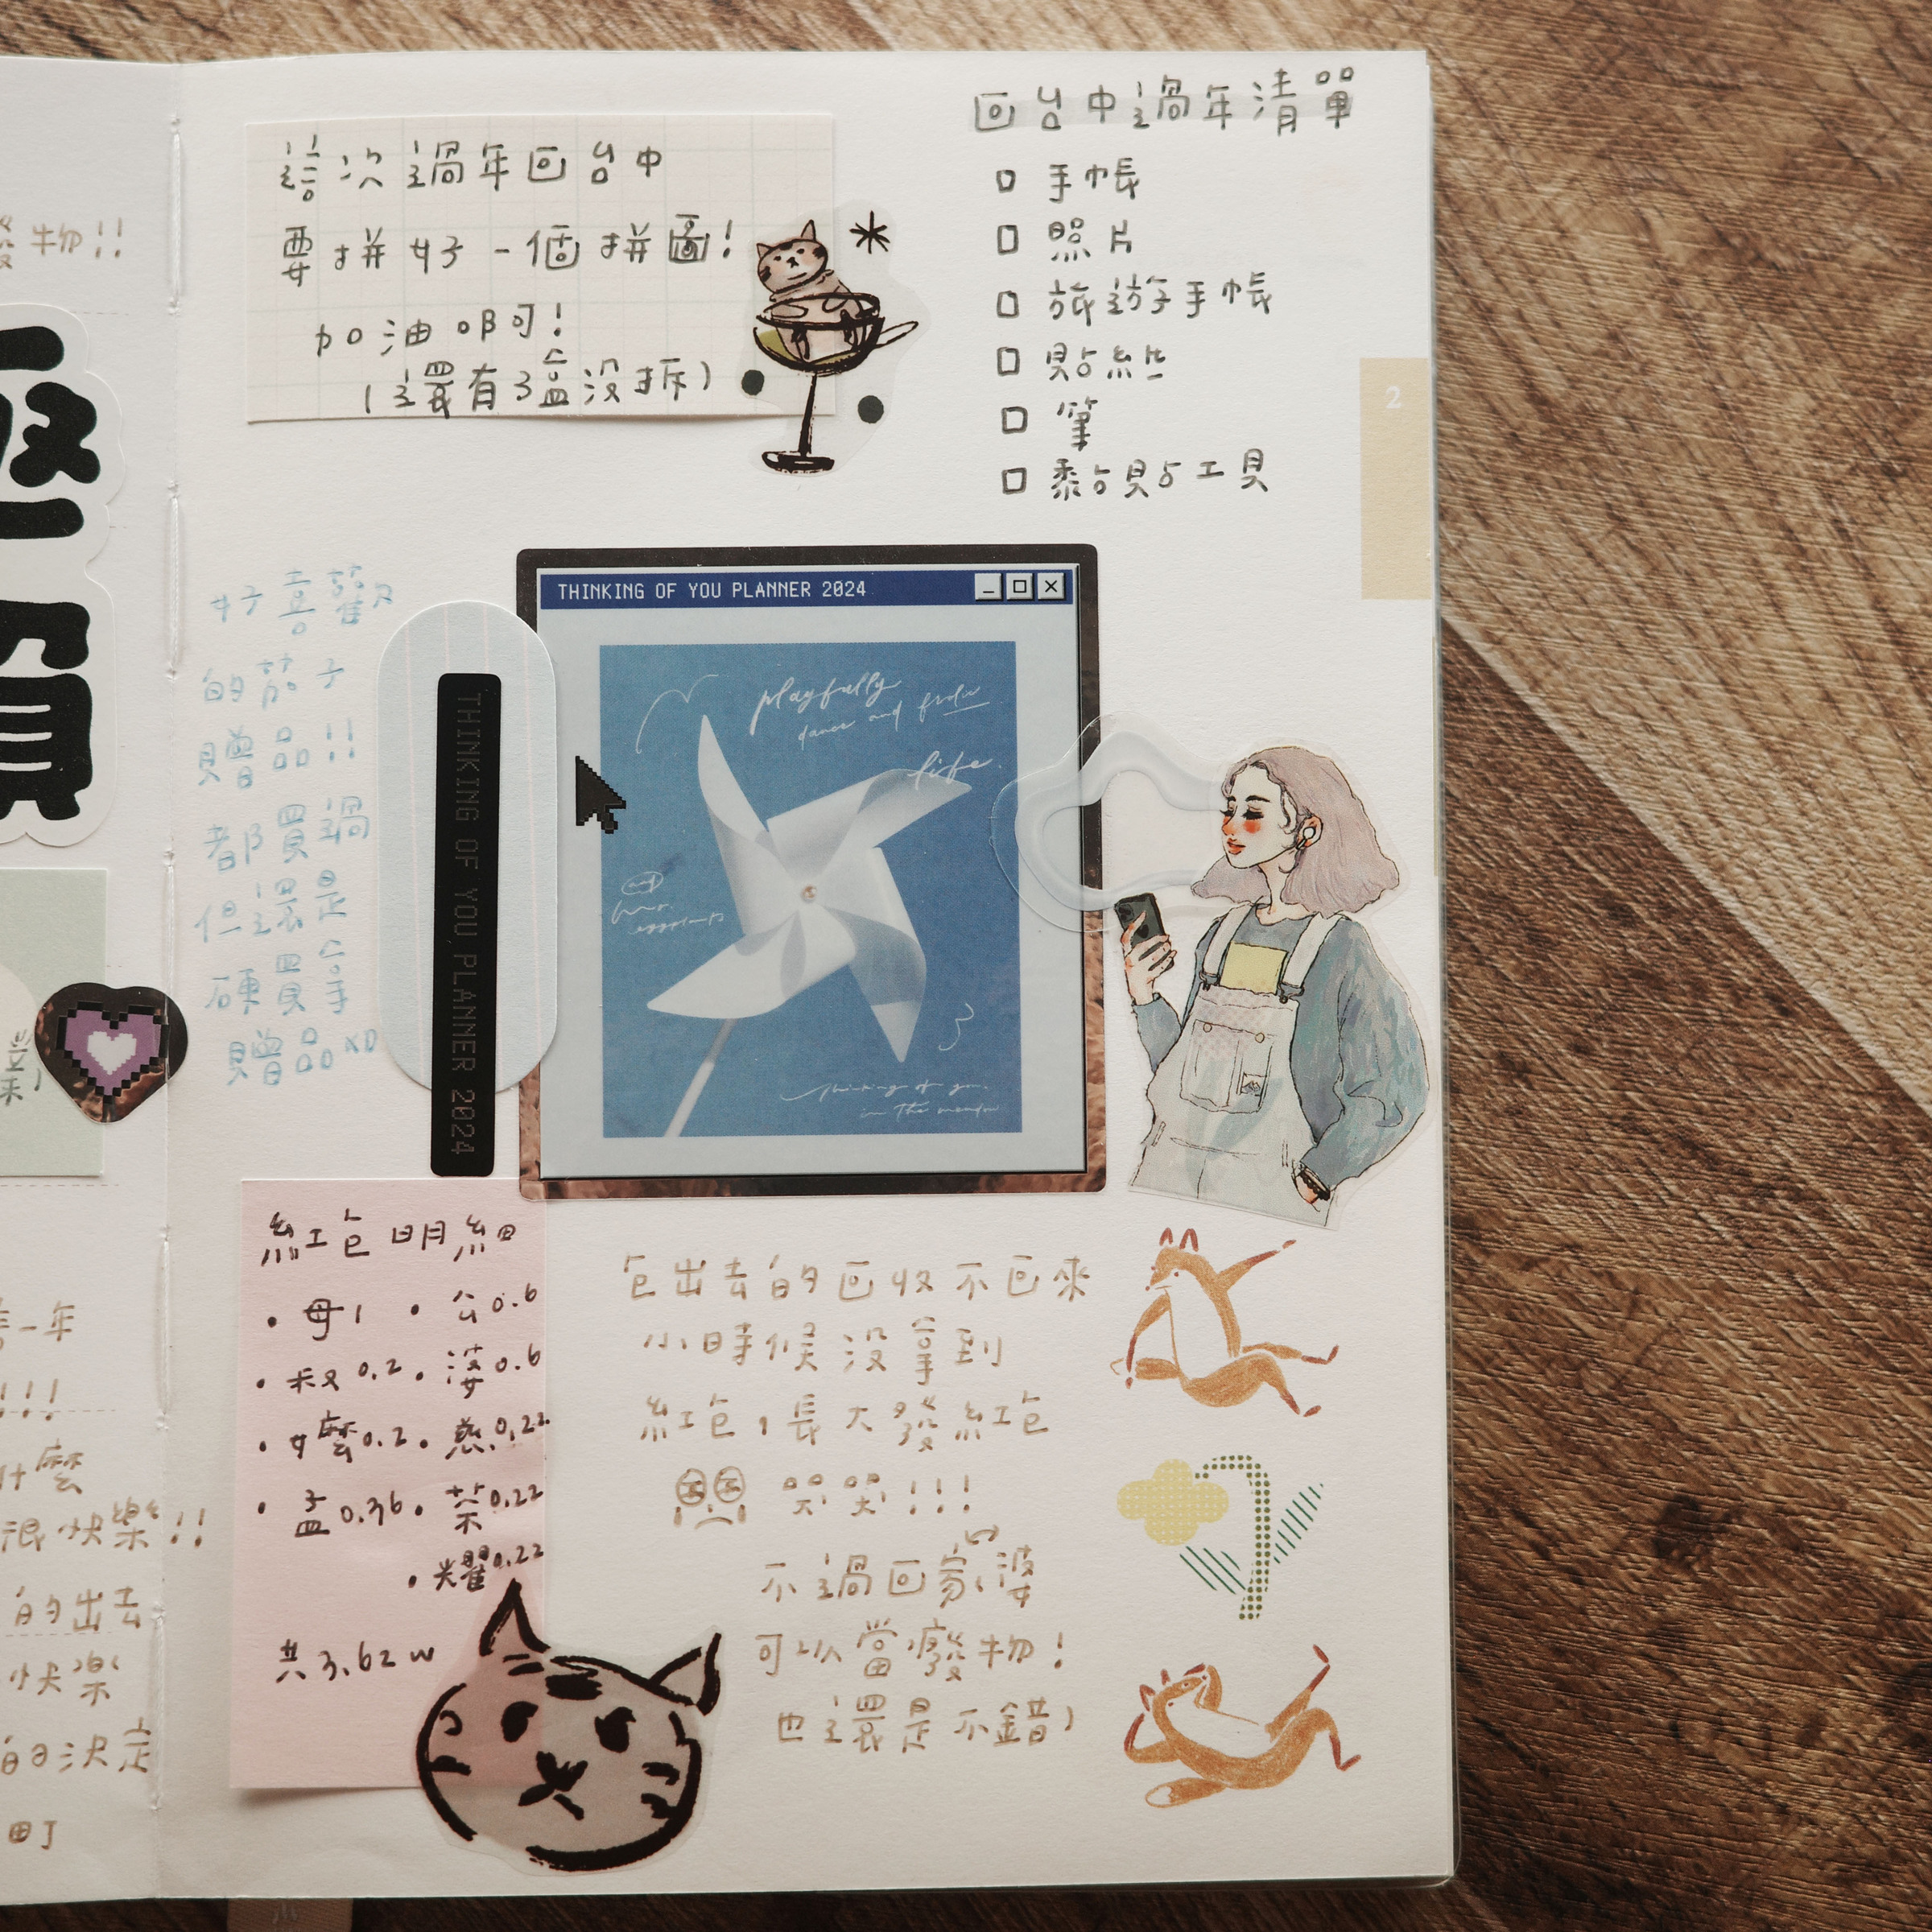 這次過年回台中
要拼好一個拼圖!
加油啊可!
(還有3盒沒拆)
回台中過年清單
□ 手帳
□ 照片
□ 旅遊手帳
□ 貼紙
□ 筆
□ 黏貼工具
2
好喜歡
的茄子
贈品!!
都買過
但還是
硬買拿
贈品XD
THINKING OF YOU PLANNER 2024
THINKING OF YOU PLANNER 2024
playfully
dance and
life.
thinking of you.
in the meadow
紅包明細
• 母1 • 公0.6
• 叔0.2 • 婆0.6
• 嬤0.2 • 慈0.22
• 孟0.36 • 荣0.22
• 耀0.22
共3.62w
包出去的回收不回來
小時候沒拿到
紅包,長大發紅包
哭哭!!!
不過回家婆
可以當廢物!
也還是不錯)
物!!
一年
!!!
什麼
很快樂!!
的出去
快樂
的決定
町